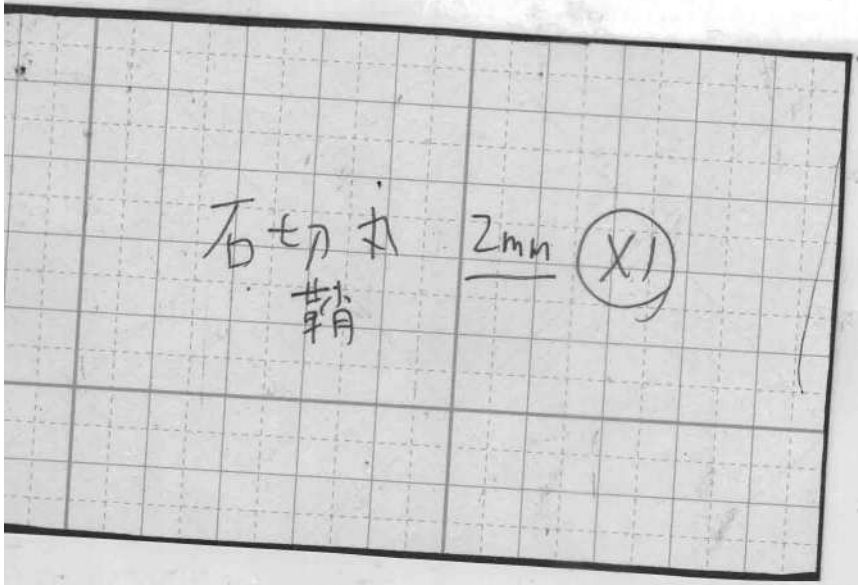 石切丸 2mm X1
鞘